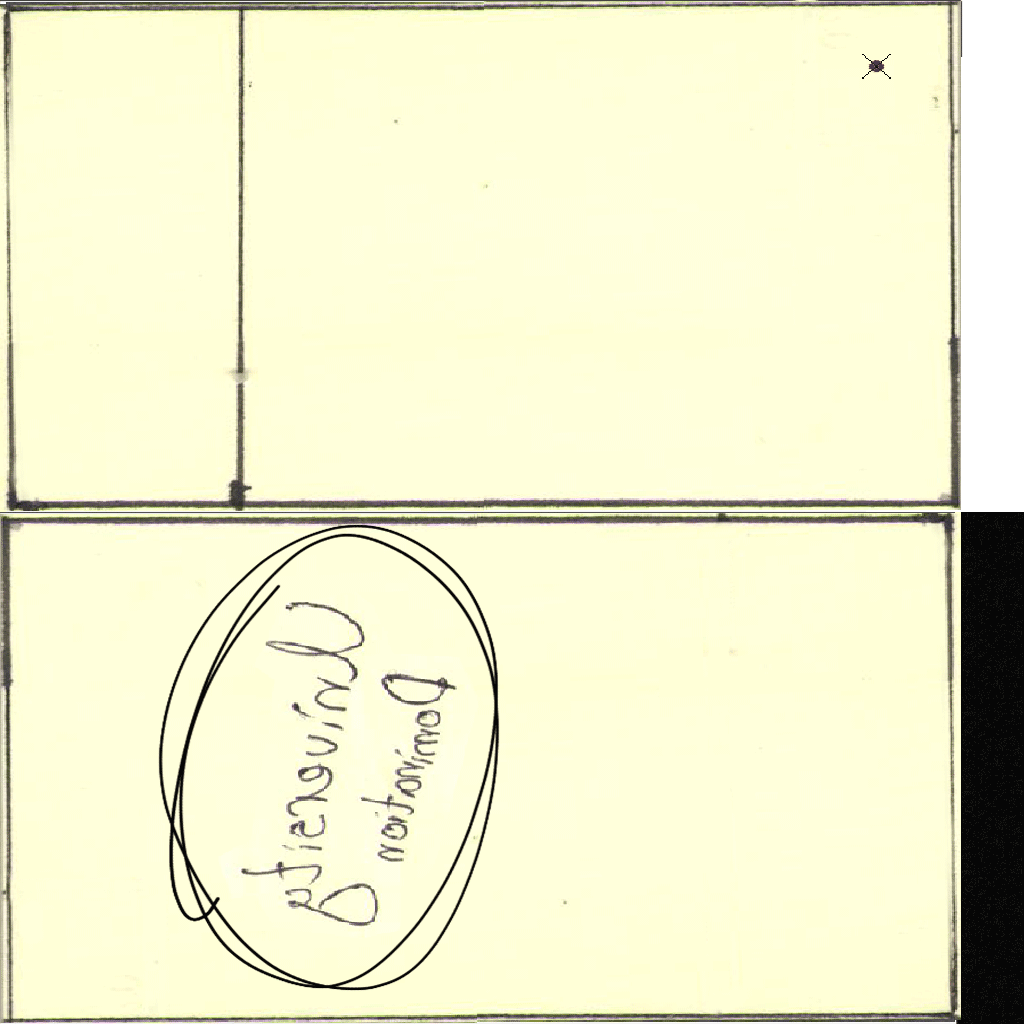 University
Domination